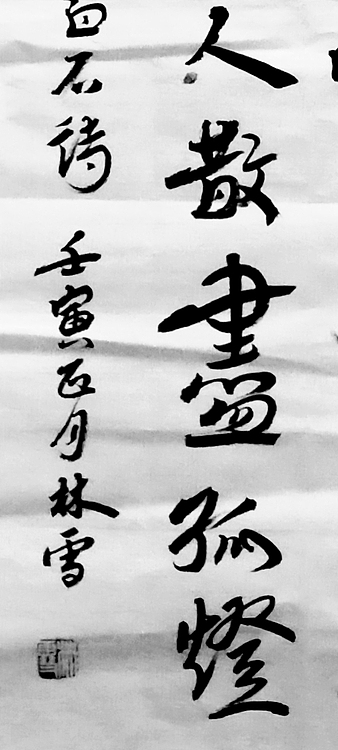 人散盡孤燈
白石詩 壬寅正月林雪